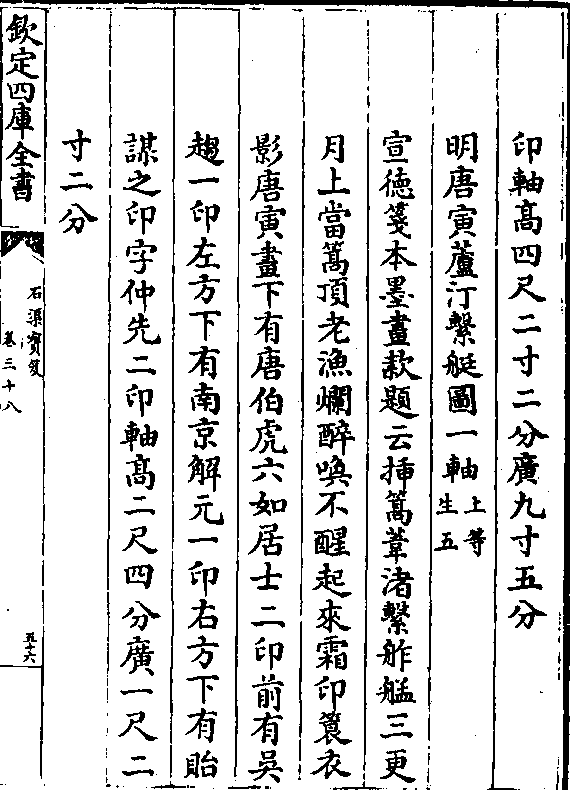 印軸髙四尺二寸二分廣九寸五分
明唐寅蘆汀繫艇圖一軸上等
生五
宣徳箋本墨畫款題云揷篙葦渚繫舴艋三更
月上當篙頂老漁爛醉喚不醒起來霜印簑衣
影唐寅畫下有唐伯虎六如居士二印前有吳
趨一印左方下有南京解元一印右方下有貽
謀之印字仲先二印軸髙二尺四分廣一尺二
寸二分
欽定四庫全書
石渠寳笈
卷三十八
五十六